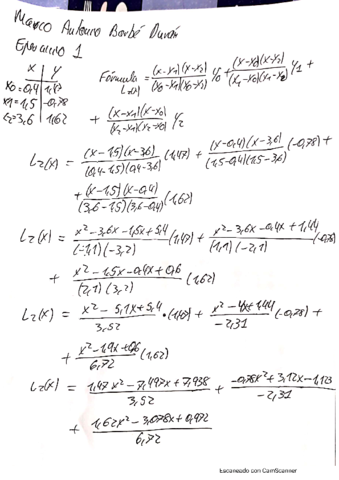 Marco Antonio Barbé Durán
Ejercicio 1
x y
x0=0,4 1,47
x1=1,5 -0,78
x2=3,6 1,62
Fórmula L2(x) = (x-x1)(x-x2)/(x0-x1)(x0-x2) y0 + (x-x0)(x-x2)/(x1-x0)(x1-x2) y1 +
+ (x-x1)(x-x0)/(x2-x1)(x2-x0) y2
L2(x) = (x-1,5)(x-3,6)/(0,4-1,5)(0,4-3,6) (1,47) + (x-0,4)(x-3,6)/(1,5-0,4)(1,5-3,6) (-0,78) +
+ (x-1,5)(x-0,4)/(3,6-1,5)(3,6-0,4) (1,62)
L2(x) = x²-3,6x-1,5x+5,4/(-1,1)(-3,2) (1,47) + x²-3,6x-0,4x+1,44/(1,1)(-2,1) (-0,78)
+ x²-1,5x-0,4x+0,6/(2,1)(3,2) (1,62)
L2(x) = x²-5,1x+5,4/3,52 • (1,47) + x²-4x+1,44/-2,31 (-0,78) +
+ x²-1,9x+0,6/6,72 (1,62)
L2(x) = 1,47x²-7,497x+7,938/3,52 + -0,78x²+3,12x-1,123/-2,31
+ 1,62x²-3,078x+0,972/6,72
Escaneado con CamScanner